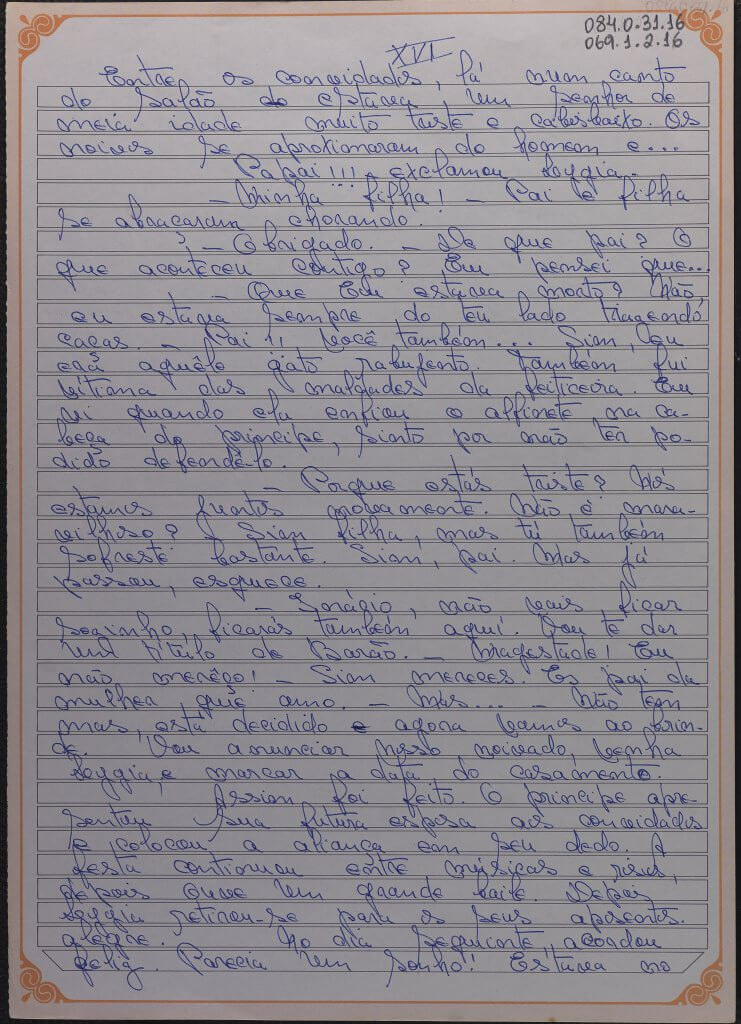 084.0.31.16
069.1.2.16
XVI
Entre os convidados, lá num canto
do salão estava um senhor de
meia idade muito triste e cabisbaixo. Os
noivos se aproximaram do homem e...
Papai!!! exclamou
– Minha filha! – Pai e filha
se abraçaram chorando.
? – Obrigado. – De que pai? O
que aconteceu contigo? Eu pensei que...
– Que Eu estava morto? Não
eu estava sempre do teu lado trazendo
caças. – Pai!! Você também... Sim, eu
era aquêle gato rabugento. Também fui
vítima das maldades da feiticeira. Eu
vi quando ela enfiou o alfinete na ca-
beça do príncipe, sinto por não ter po-
dido defendê-lo.
– Porque estás triste? Nós
estamos juntos novamente. Não é mara-
vilhoso? Sim filha, mas tú também
sofreste bastante. Sim, pai. Mas já
passou, esquece.
– Inácio, não vais ficar
sozinho, ficarás também aqui. Vou te dar
um título de Barão. – Magestade! Eu
não merêço! – Sim mereces. És pai da
mulher que amo. – Mas... – Não tem
mas, está decidido e agora vamos ao brin-
de. Vou anunciar nosso noivado, venha
e marcar a data do casamento.
Assim foi feito. O príncipe apre-
sentou sua futura esposa aos convidados
e colocou a aliança em seu dedo. A
festa continuou entre músicas e risos,
depois houve um grande baile. Depois
retirou-se para os seus aposentos.
alegre. No dia seguinte, acordou
feliz. Parecia um sonho! Estava no